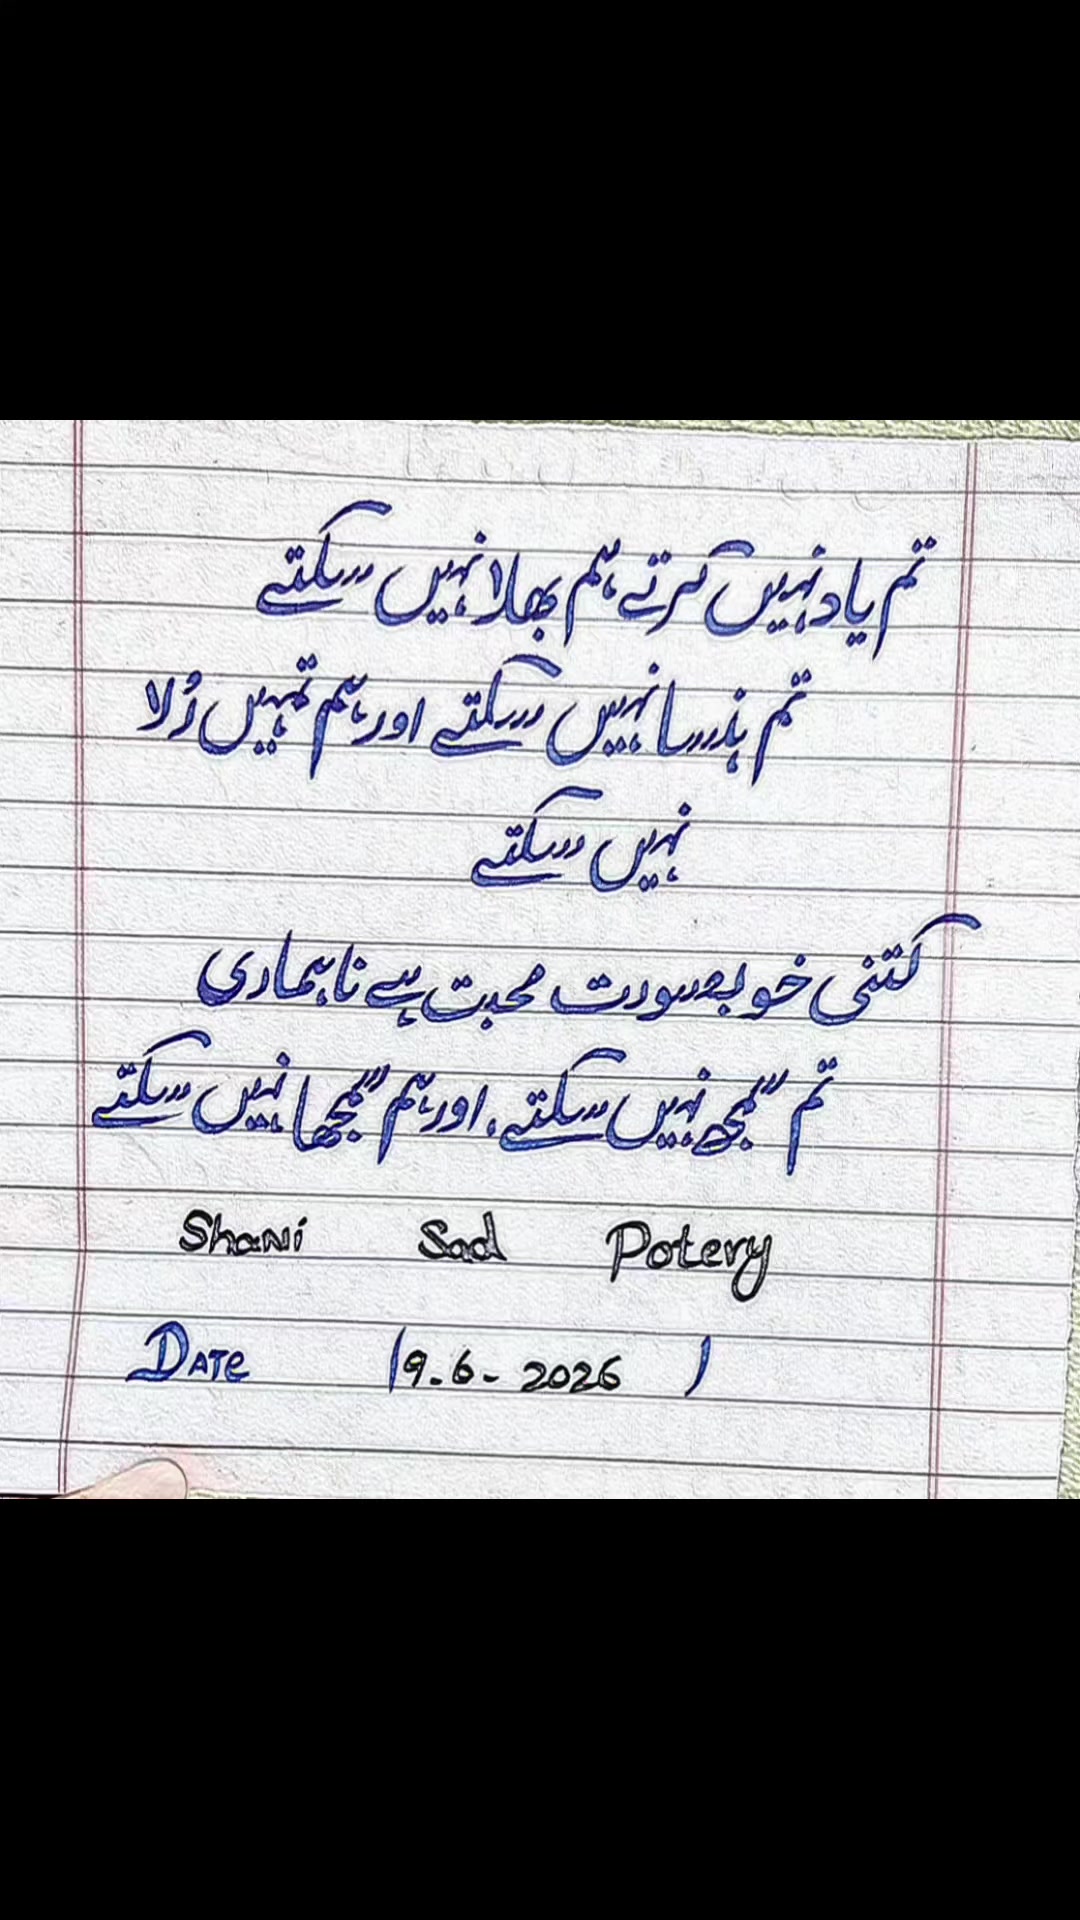 تم یاد نہیں کرتے ہم بھلا نہیں سکتے
تم ہنسا نہیں سکتے اور ہم تمہیں رُلا
نہیں سکتے
کتنی خوبصورت محبت ہے نا ہماری
تم سمجھ نہیں سکتے، اور ہم سمجھا نہیں سکتے
Shani Sad Potery
DATE (9.6-2026)